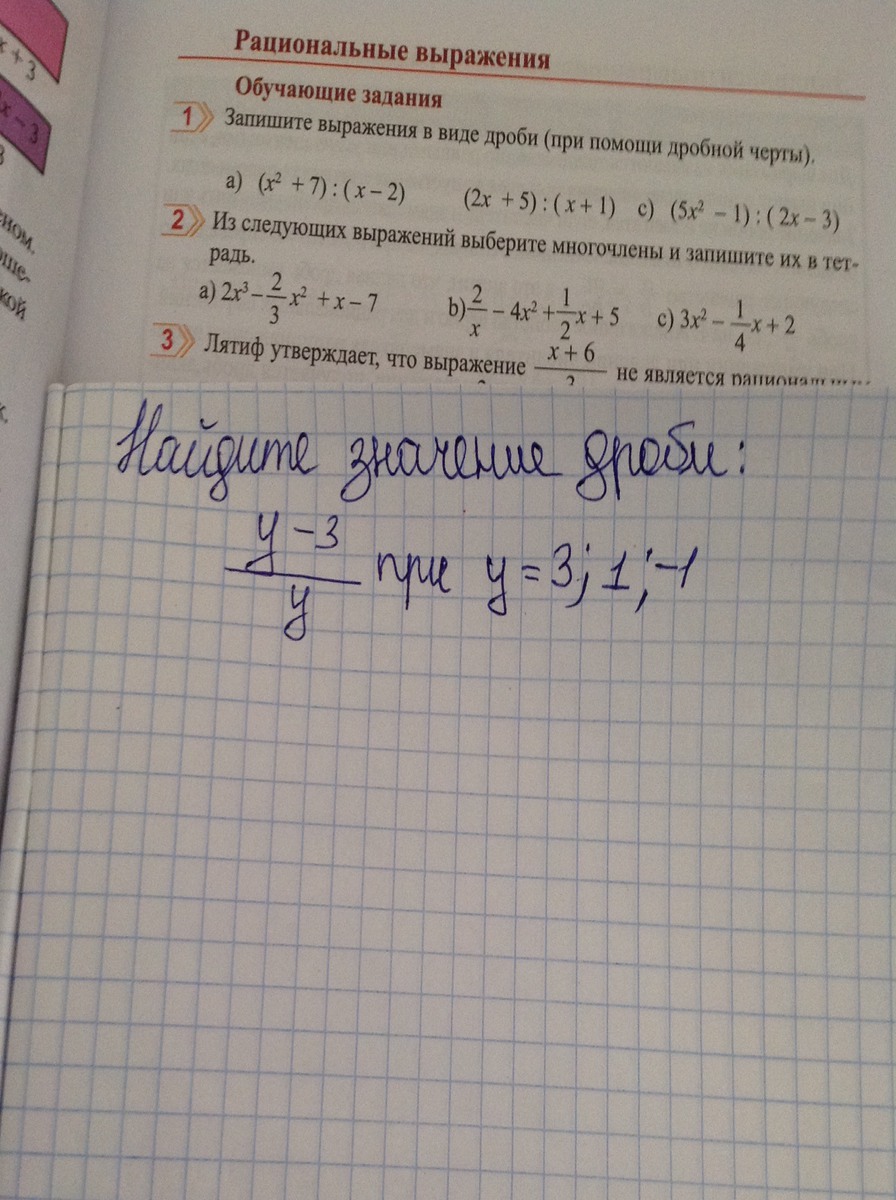 x + 3
x – 3
Рациональные выражения
Обучающие задания
1 Запишите выражения в виде дроби (при помощи дробной черты).
a) (x² + 7) : ( x – 2) (2x + 5) : ( x + 1) c) (5x² – 1) : ( 2x – 3)
2 Из следующих выражений выберите многочлены и запишите их в тет-
радь.
a) 2x³ – 2/3 x² + x – 7 b) 2/x – 4x² + 1/2 x + 5 c) 3x² – 1/4 x + 2
3 Лятиф утверждает, что выражение x + 6 не является
Найдите значение дроби:
y – 3 / y при y = 3; 1; –1